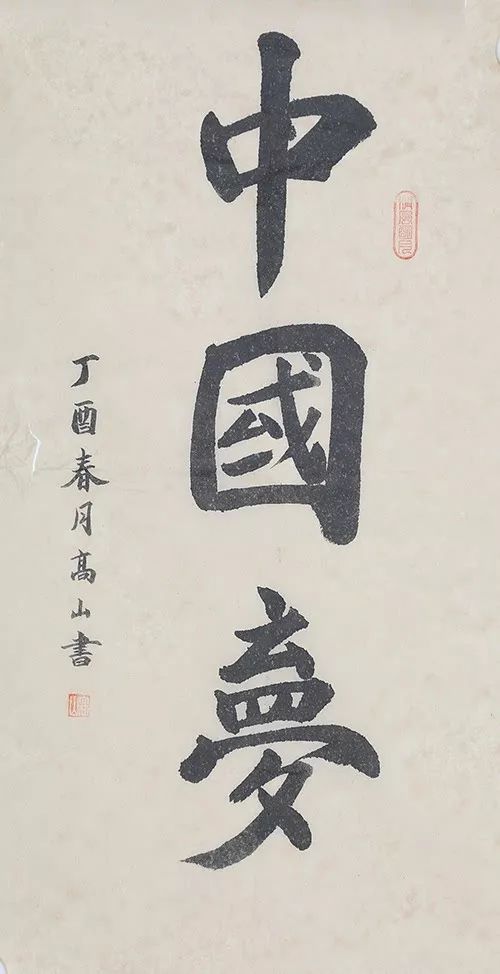 中國夢
丁酉春月高山書